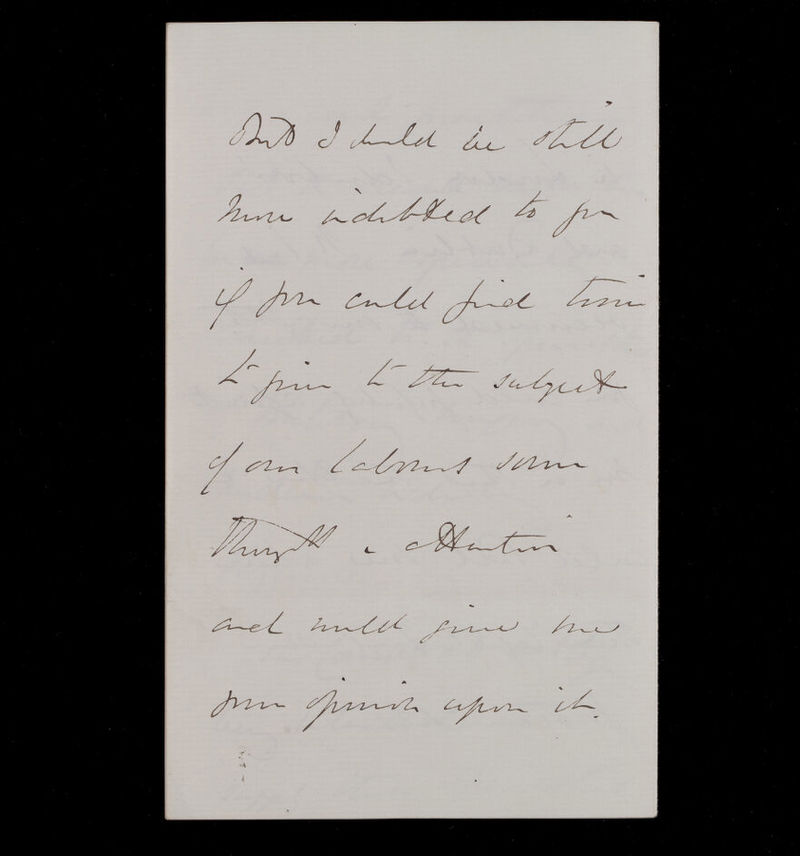 But I should be still
more indebted to you
if you could find time
to give to the subject
of our labours some
thought & attention
and would give me
your opinion upon it.